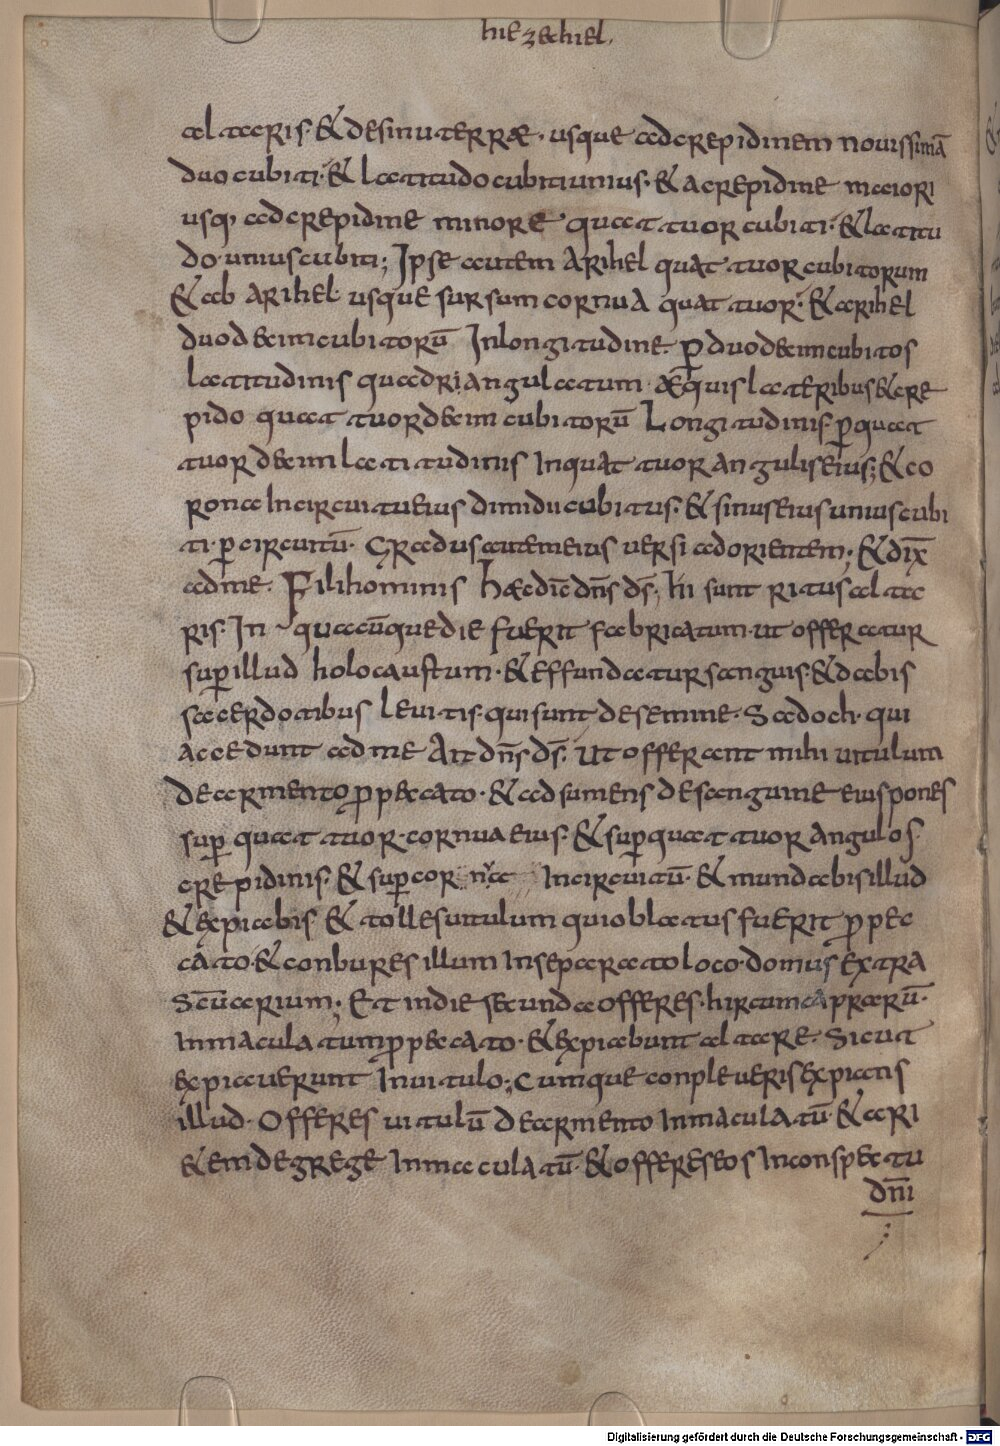 hiezechiel.
altaris. & desinu terræ. usque adcrepidinem nouissimā
duo cubiti. & latitudo cubiti unius. & a crepidine maiori
usq; adcrepidine minore quattuor cubiti. & latitu
do unius cubiti; Ipse autem Arihel quattuor cubitorum
& ab Arihel usque sursum cornua quattuor. & arihel
duodecim cubitorū Inlongitudine. ꝑ duodecim cubitos
latitudinis quadriangulatum. Æquis lateribus & cre
pido quattuordecim cubitorū Longitudinis. ꝑ quat
tuordecim latitudinis Inquattuor angulis eius; & co
rona Incircuitu eius dimidii cubitus. & sinus eius unius cubi
ti. ꝑ circuitū. Gradus autem eius uersi adorientem; & dix̄
adme. Fili hominis hæc dic̄ dn̄s ds̄; hi sunt ritus alta
ris. In quacūque die fuerit fabricatum. ut offeratur
suꝑ illud holocaustum. & effundatur sanguis. & dabis
sacerdotibus leuitis. qui sunt desemine. Sadoch. qui
accedunt adme Ait dn̄s ds̄. Ut offerant mihi uitulum
de armento ꝓ peccato. & adsumens desanguine eius pones
suꝑ quattuor. cornua eius. & suꝑ quattuor angulos.
crepidinis. & suꝑ cor na Incircuitū. & mundabis illud
& expiabis & tolles uitulum qui oblatus fuerit ꝓ pec
cato. & conbures illum Inseparato loco. domus extra
Scūarium; Et indie secunda offeres. hircum caprarū.
Inmaculatum ꝓ peccato. & expiabunt altare. Sicut
expiauerunt Inuitulo; Cumque conpleueris expians
illud. Offeres uitulū de armento Inmaculatū. & ari
& em degrege Inmaculatū. & offeres eos Inconspectu
dn̄i
Digitalisierung gefördert durch die Deutsche Forschungsgemeinschaft - DFG